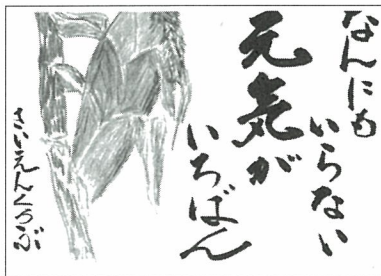 なんにも
いらない
元気が
いちばん
さいえんくらぶ